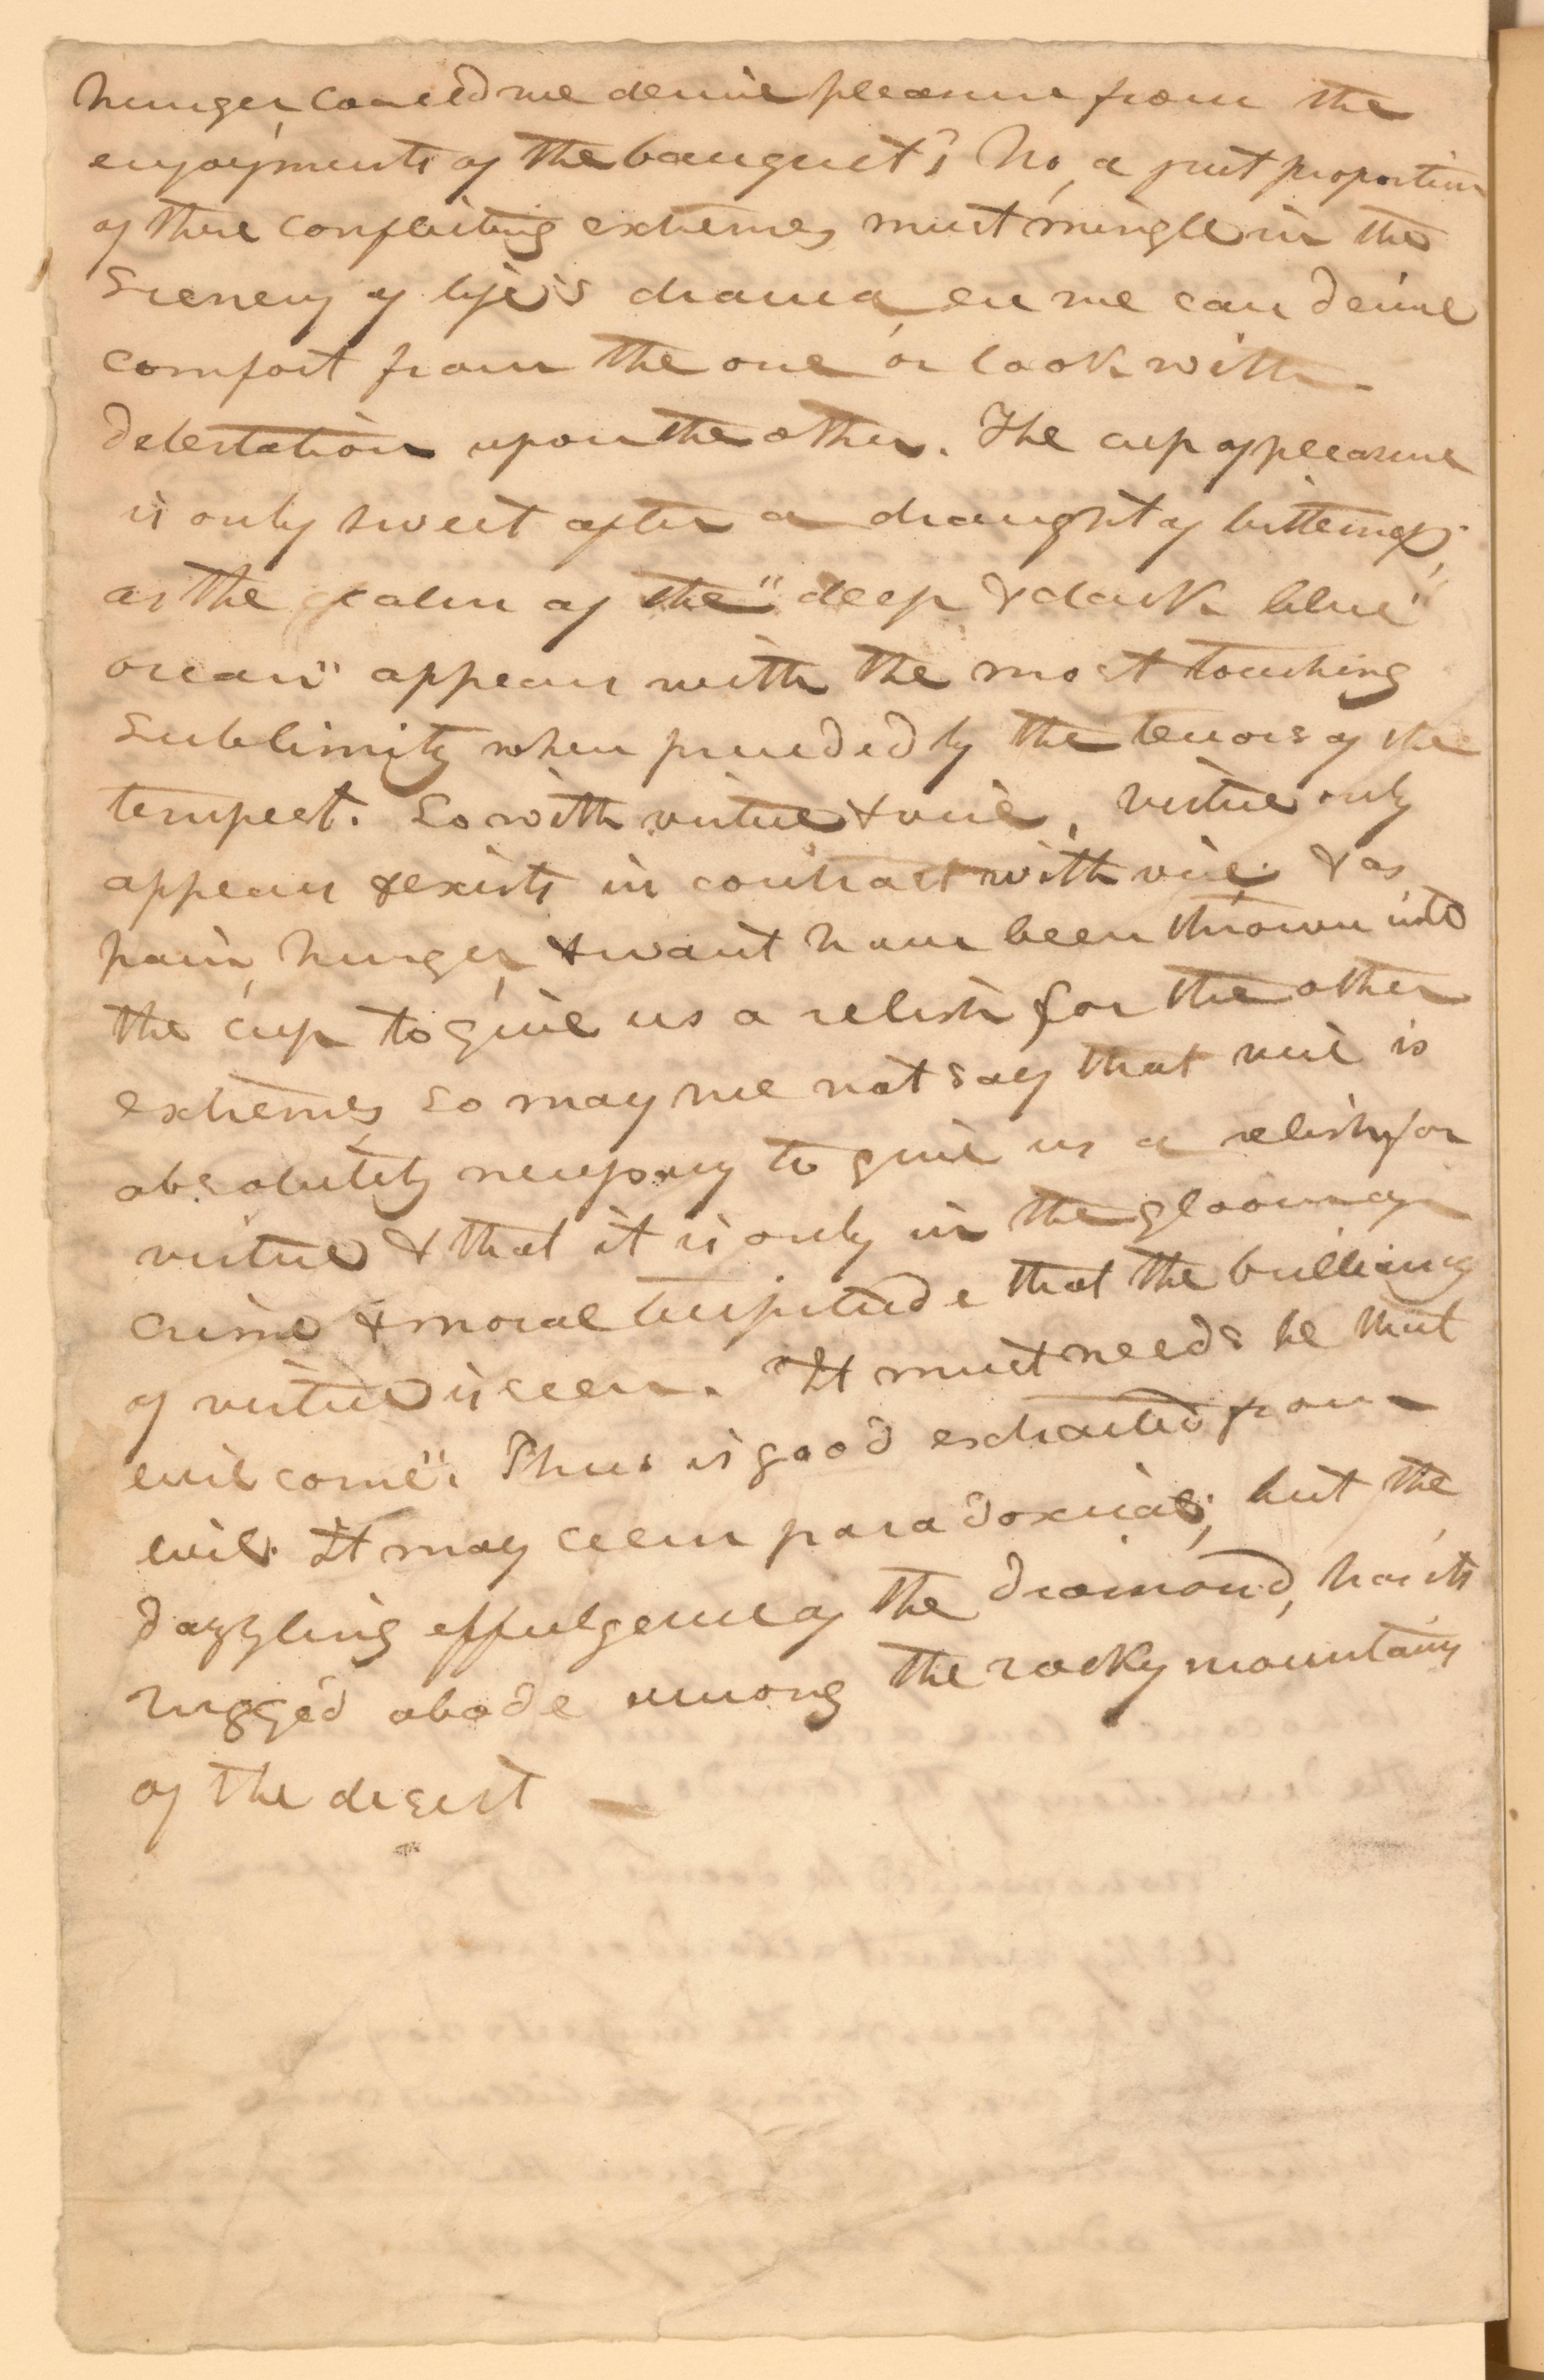 hunger, could we derive pleasure from the
enjoyments of the banquet? No, a just proportion
of these conflicting extremes must mingle in the
scenery of life's drama, ere we can derive
comfort from the one or look with
detestation upon the other. The cup of pleasure
is only sweet after a draught of bitterness;
as the calm of the "deep & dark blue
ocean" appears with the most touching
sublimity when preceded by the terrors of the
tempest. So with virtue & vice, virtue only
appears & exists in contrast with vice & as
pain, hunger, & want have been thrown into
the cup to give us a relish for the other
extremes, so may we not say that vice is
absolutely necessary to give us a relish for
virtue & that it is only in the gloom of
crime & moral turpitude that the brilliancy
of virtue is seen. "It must needs be that
evil come". Thus is good extracted from
evil. It may seem paradoxical; but the
dazzling effulgence of the diamond, has its
rugged abode among the rocky mountains
of the desert —